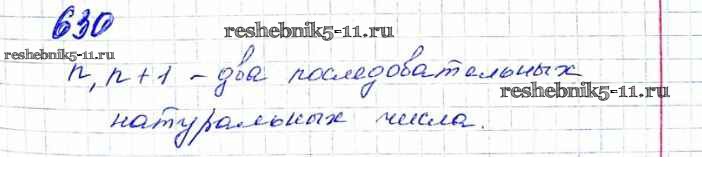 630
reshebnik5-11.ru
reshebnik5-11.ru
n, n+1 - два последовательных
reshebnik5-11.ru
натуральных числа.